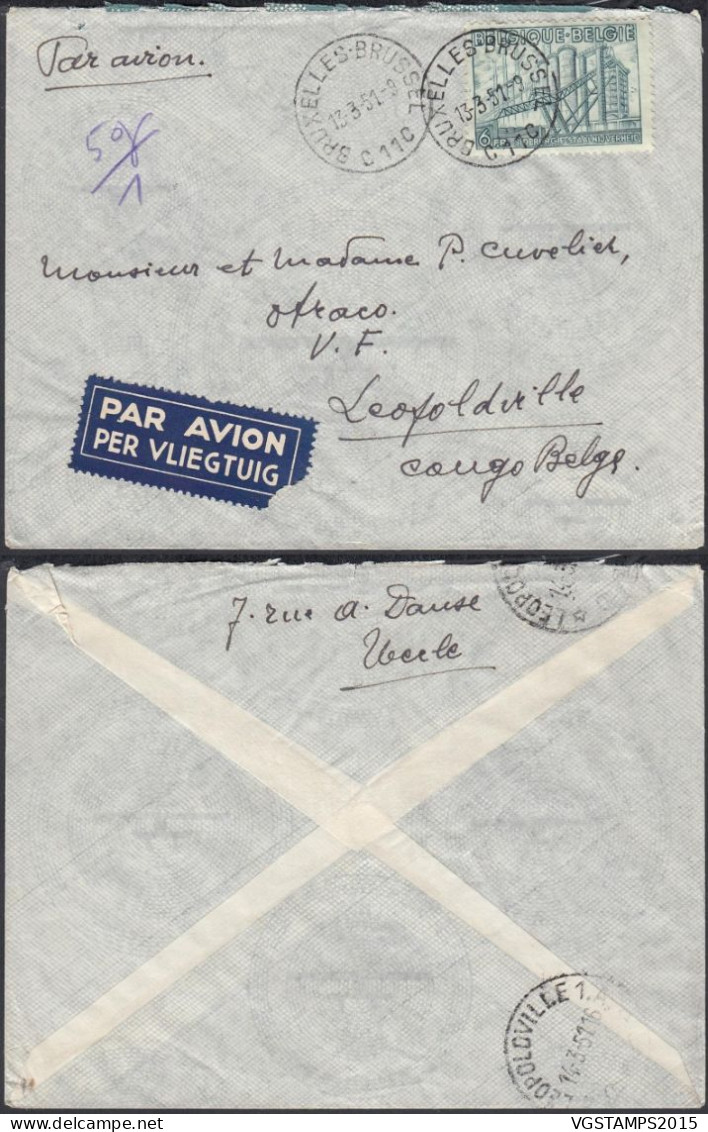 Par avion.
BRUXELLES-BRUSSEL
13-3-51-9
C 11 C
BRUXELLES-BRUSSEL
13-3-51-9
C 11 C
BELGIQUE-BELGIE
6 FR
1
Monsieur et Madame P. Cuvelier,
Otraco.
V. F.
Leopoldville
Congo Belge.
PAR AVION
PER VLIEGTUIG
7. rue A. Danse
Uccle
LEOPOLDVILLE 1.
14-3-51
VGSTAMPS2015